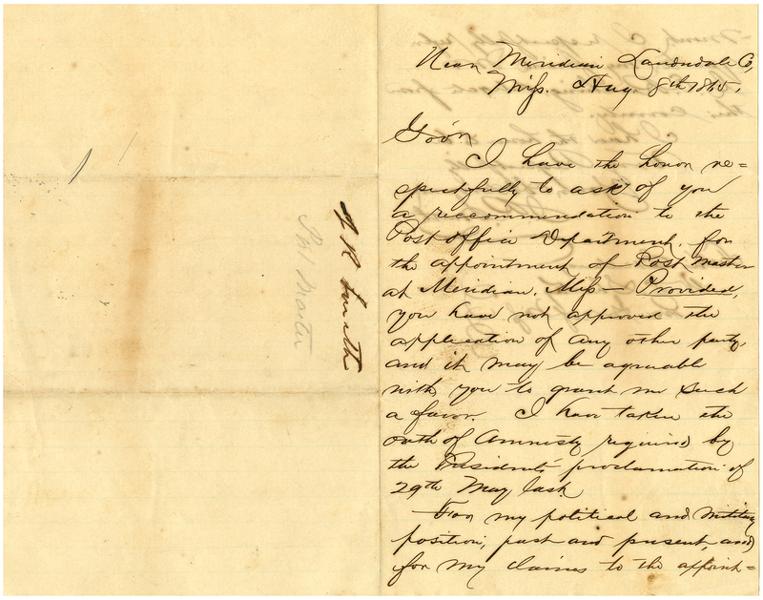 A R Smith
Post Master
Near Meridian Lauderdale Co,
Miss. Aug 8th 1865.
Gov'n
I have the honor re=
spectfully to ask of you
a reccommendation to the
Post office Department, for
the appointment of Post Master
at Meridian, Miss — Provided,
you have not approved the
application of any other party,
and it may be agreeable
with you to grant me such
a favor. I have taken the
oath of Amnesty required by
the President's proclamation of
29th May last.
For my political and military
position, past and present, and
for my claims to the appoint=